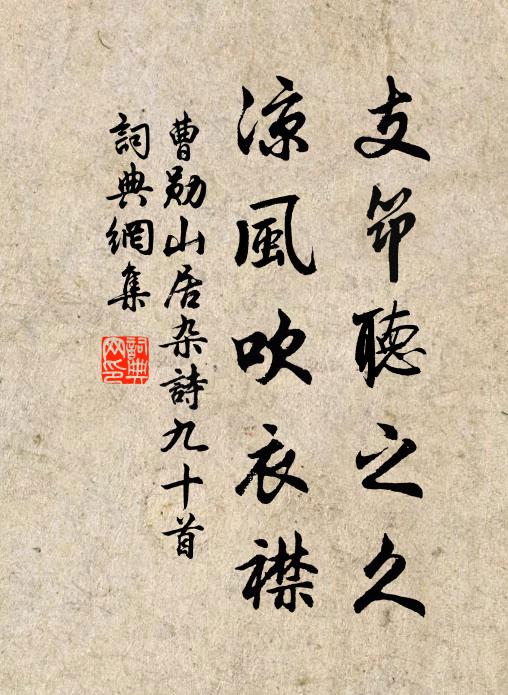 支笻聽之久
凉風吹衣襟
曹勋山居杂詩九十首
詞典網集
詞典
网印